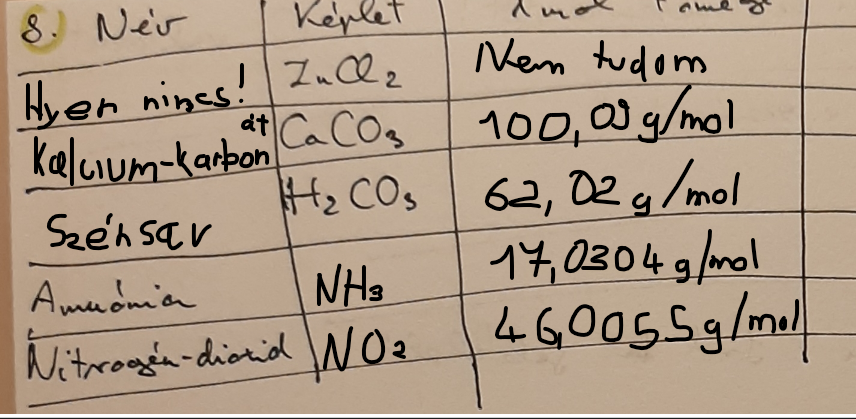 8. Név Képlet 1 mol tömege
Hyen nincs! ZnCl2 Nem tudom
Kalcium-karbonát CaCO3 100,09 g/mol
Szénsav H2CO3 62,02 g/mol
Ammónia NH3 17,0304 g/mol
Nitrogén-dioxid NO2 46,0055 g/mol